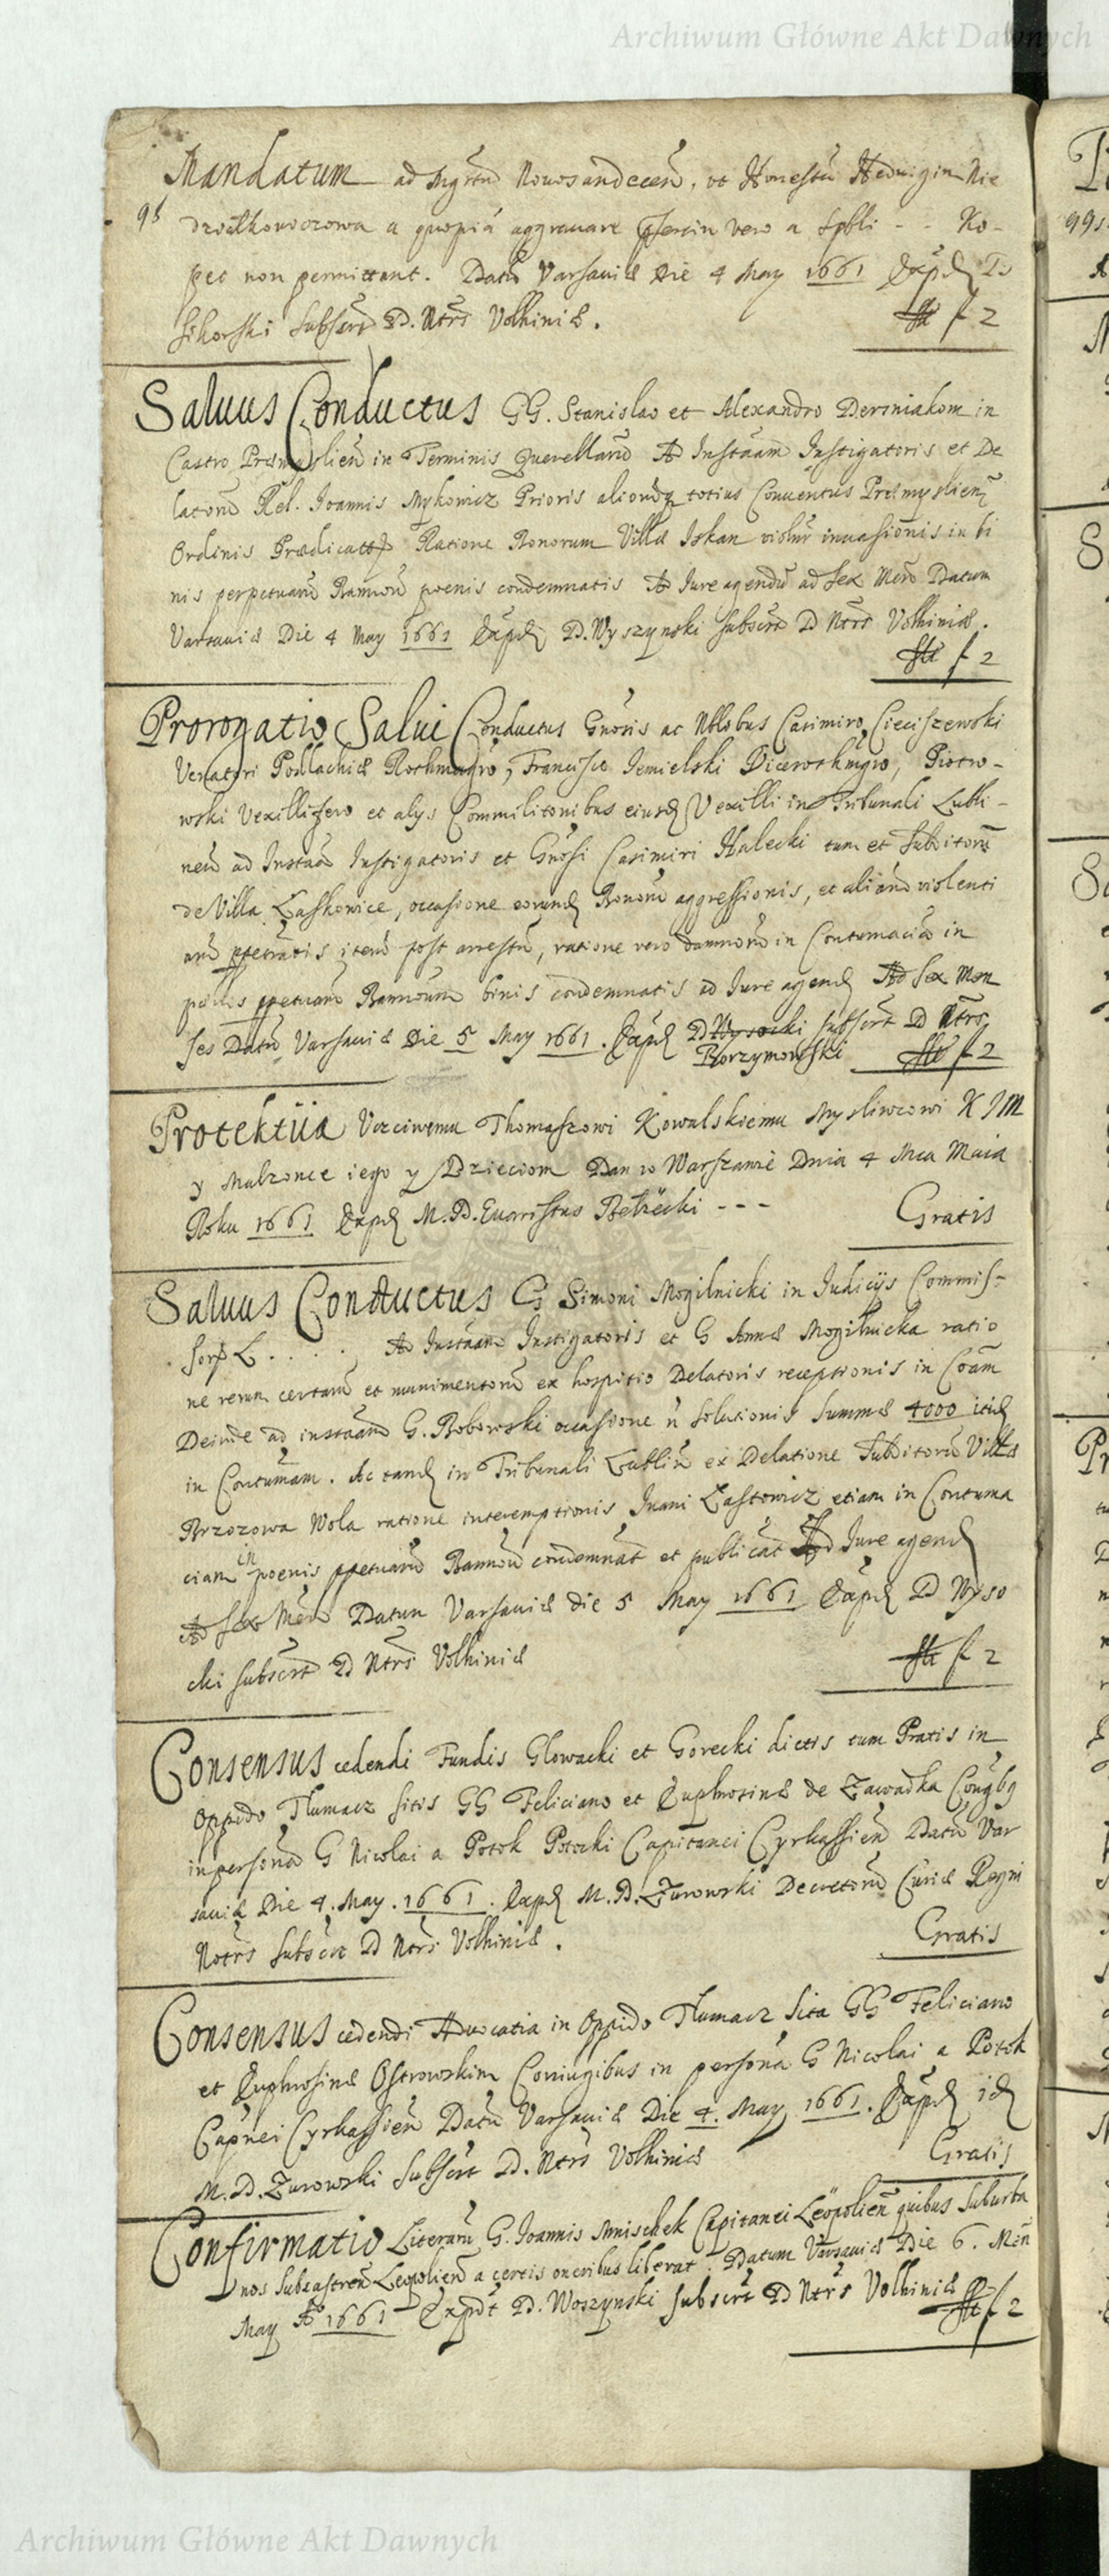 Archiwum Główne Akt Dawnych
Mandatum ad Mgrtū Novosandecen̄, ut Honestā Hedvigin Nie
98
dzwilkowiczowa a quopiā aggravare pserim vero a Spbli - - Ko-
pec non permittant. Datū Varsauiæ Die 4 May 1661 Expd D
Sikorski Subscrt D. Ntrs Volhiniæ.
f 2
Saluus Conductus GG. Stanislao et Alexandro Dersniakom in
Castro Præmyslien̄ in Terminis Querellarū Ad Instāam Instigatoris et De
latorū Rel. Joannis Mykowicz Prioris aliorūq totius Conventus Præmyslien̄
Ordinis Prædicat Ratione Bonorum Villæ Iskan violn̄r invasionis in bi
nis perpetuarū Bannorū poenis condemnatis Ad Iure agendū ad sex Men̄ Datum
Varsauiæ Die 4 May 1661 Expd D. Wyszynski Subscrt D Ntrs Volhiniæ.
f 2
Prorogatio Salui Conductus Gn̄osis ac Nblobus Casimiro Cieciszewski
Venatori Podlachiæ Rochmgro, Francisco Jemielski Vicerothmgro, Piotro-
wski Vexillifero et alys Commilitonibus eiusd Vexilli in Tribunali Lubli-
nen̄ ad Instāa Instigatoris et Gn̄osi Casimiri Halecki tum et Subditorū
de Villa Laskowice, occasione eorund Bonorū aggressionis, et aliarū violenti
arū ppetratis itend post arrestū, ratione vero damnorū in Contumaciā in
poenis ppetuarū Bannorum binis condemnatis ad Iure agend Ad sex Men
ses Datū Varsauiæ Die 5 May 1661. Expd D Wysocki subscrt D Ntrs
Borzymowski f 2
Protektiia Uczciwemu Thomaszowi Kowalskiemu Mysliwcowi K J M
y Malzonce iego y Dzieciom Dan w Warszawie Dnia 4 Mca Maia
Roku 1661 Expd M. D. Evaristus Bełżecki - - -
Gratis
Saluus Conductus G Simoni Mogilnicki in Iudicijs Commis-
sor L . . . . , Ad Instāam Instigatoris et G Annæ Mogilnicka ratio
ne rerum certarū et munimentorū ex hospitio Delatoris receptionis in Coām
Deinde ad instāam G. Bobowski occasione n̄ Solutionis Summæ 4000 itid
in Contumam. Ac tand in Tribunali Lublin̄ ex Delatione Subditorū Villæ
Brzozowa Wola ratione interemptionis Iwani Lastowicz etiam in Contuma
ciam in poenis ppetuarū Bannorū condemnat et publicat Ad Iure agend
Ad Sex Men̄ Datum Varsauiæ die 5 May 1661 Expd D Wyso
cki subscrt D Ntrs Volhiniæ
f 2
Consensus cedendi Fundis Glowacki et Gorecki dictis tum Pratis in
Oppido Tlumacz sitis GG Feliciano et Euphrosinæ de Zawadka
in personā G Nicolai a Potok Potocki Capitanei Cyrkassien̄ Datū Var
sauiæ Die 4. May. 1661. Expd M. D. Zurowski Decretorū Curiæ Regni
Notrs Subscrt D Ntrs Volhiniæ.
Gratis
Consensus cedendi Advocatia in Oppido Tlumacz sita GG Feliciano
et Euphrosinæ Ostrowskim Coniugibus in personā G Nicolai a Potok
Capnei Cyrkassien̄ Datū Varsauiæ Die 4. May 1661. Expd id
M. D. Zurowski Subscrt D. Ntrs Volhiniæ
Gratis
Confirmatio Literarū G. Joannis Mnischek Capitanei Leopolien̄ quibus Suburba
nos Subcastren̄ Leopolien̄ a certis oneribus liberat. Datum Varsauiæ Die 6. Men̄
May Aō 1661 Expdt D. Woszynski subscrt D Ntrs Volhiniæ
f 2
Archiwum Główne Akt Dawnych